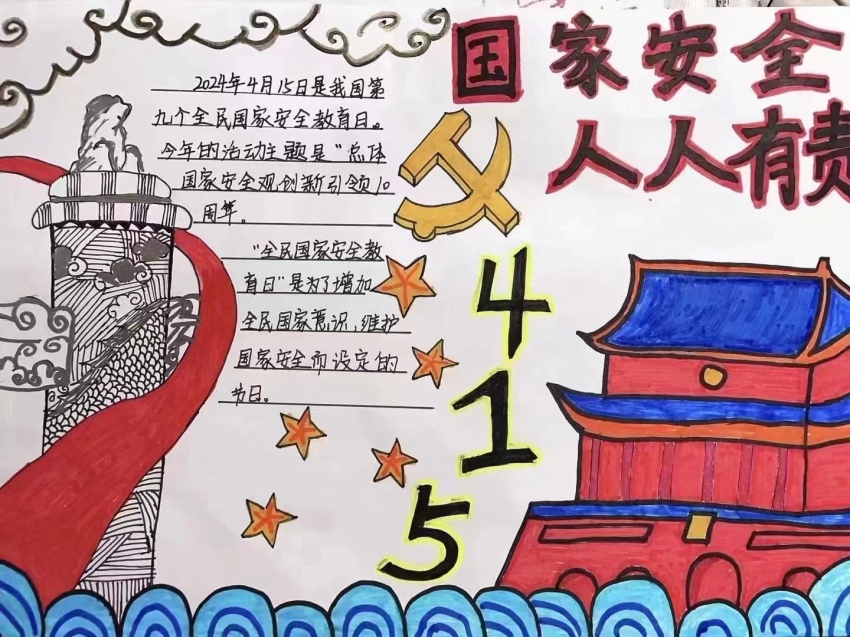 国家安全
人人有责
2024年4月15日是我国第
九个全民国家安全教育日。
今年的活动主题是“总体
国家安全观创新引领10
周年。
“全民国家安全教
育日”是为了增加
全民国家意识,维护
国家安全而设定的
节日。
4
1
5